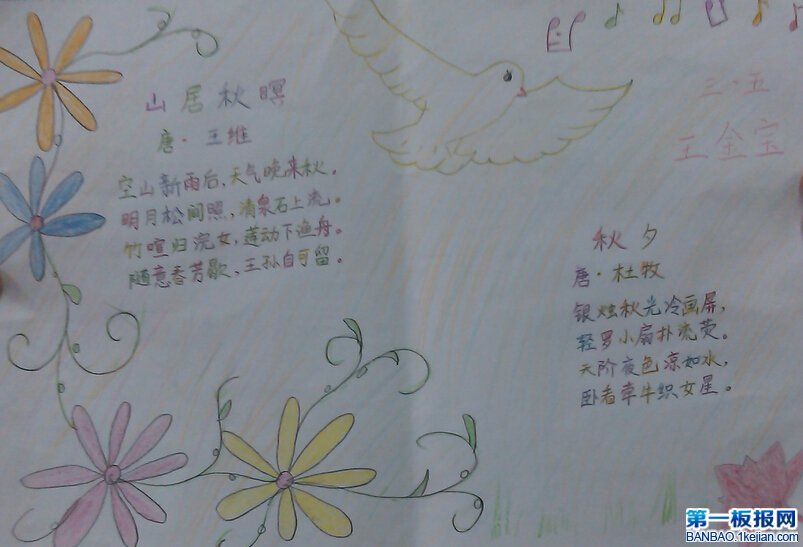 山居秋暝
唐·王维
空山新雨后,天气晚来秋。
明月松间照,清泉石上流。
竹喧归浣女,莲动下渔舟。
随意春芳歇,王孙自可留。
三·五
王金宝
秋夕
唐·杜牧
银烛秋光冷画屏,
轻罗小扇扑流荧。
天阶夜色凉如水,
卧看牵牛织女星。
第一板报网
BANBAO.1kejian.com